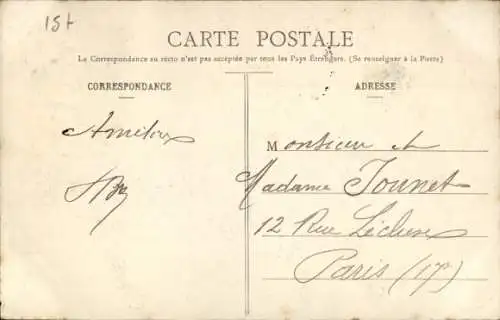 15t
CARTE POSTALE
La Correspondance au recto n'est pas acceptée par tous les Pays Étrangers. (Se renseigner à la Poste)
CORRESPONDANCE
ADRESSE
Monsieur et
Madame Jounet
12 Rue Lécluse
Paris (17e)